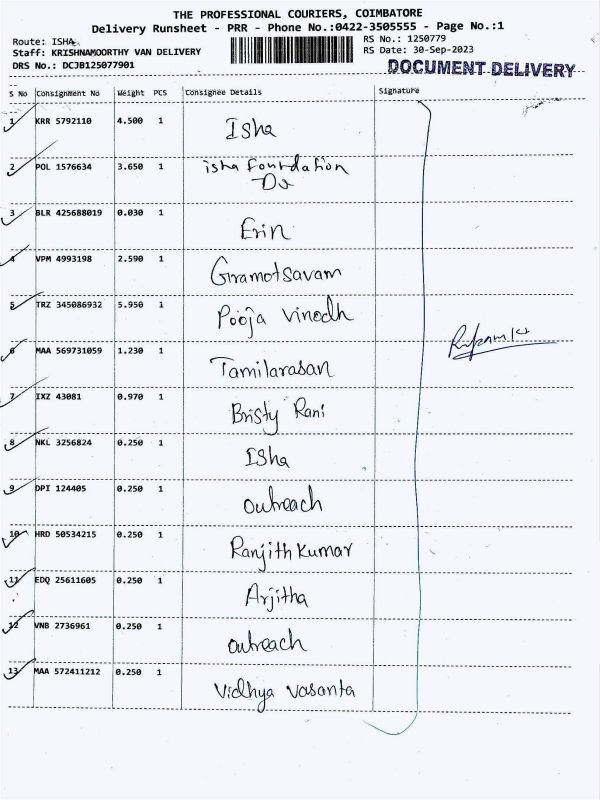 THE PROFESSIONAL COURIERS, COIMBATORE
Delivery Runsheet - PRR - Phone No.:0422-3505555 - Page No.:1
Route: ISHA
Staff: KRISHNAMOORTHY VAN DELIVERY
DRS No.: DCJB125077901
RS No.: 1250779
RS Date: 30-Sep-2023
DOCUMENT DELIVERY
S No Consignment No Weight PCS Consignee Details Signature
1 KRR 5792110 4.500 1 Isha
2 POL 1576634 3.650 1 isha foundation
3 BLR 425688019 0.030 1 Erin
4 VPM 4993198 2.590 1 Gramotsavam
5 TRZ 345086932 5.950 1 Pooja Vinodh
6 MAA 569731059 1.230 1 Tamilarasan
7 IXZ 43081 0.970 1 Bristy Rani
8 NKL 3256824 0.250 1 Isha
9 DPI 124405 0.250 1 Outreach
10 HRD 50534215 0.250 1 Ranjith Kumar
11 EDQ 25611605 0.250 1 Arjitha
12 VNB 2736961 0.250 1 Outreach
13 MAA 572411212 0.250 1 Vidhya Vasanta